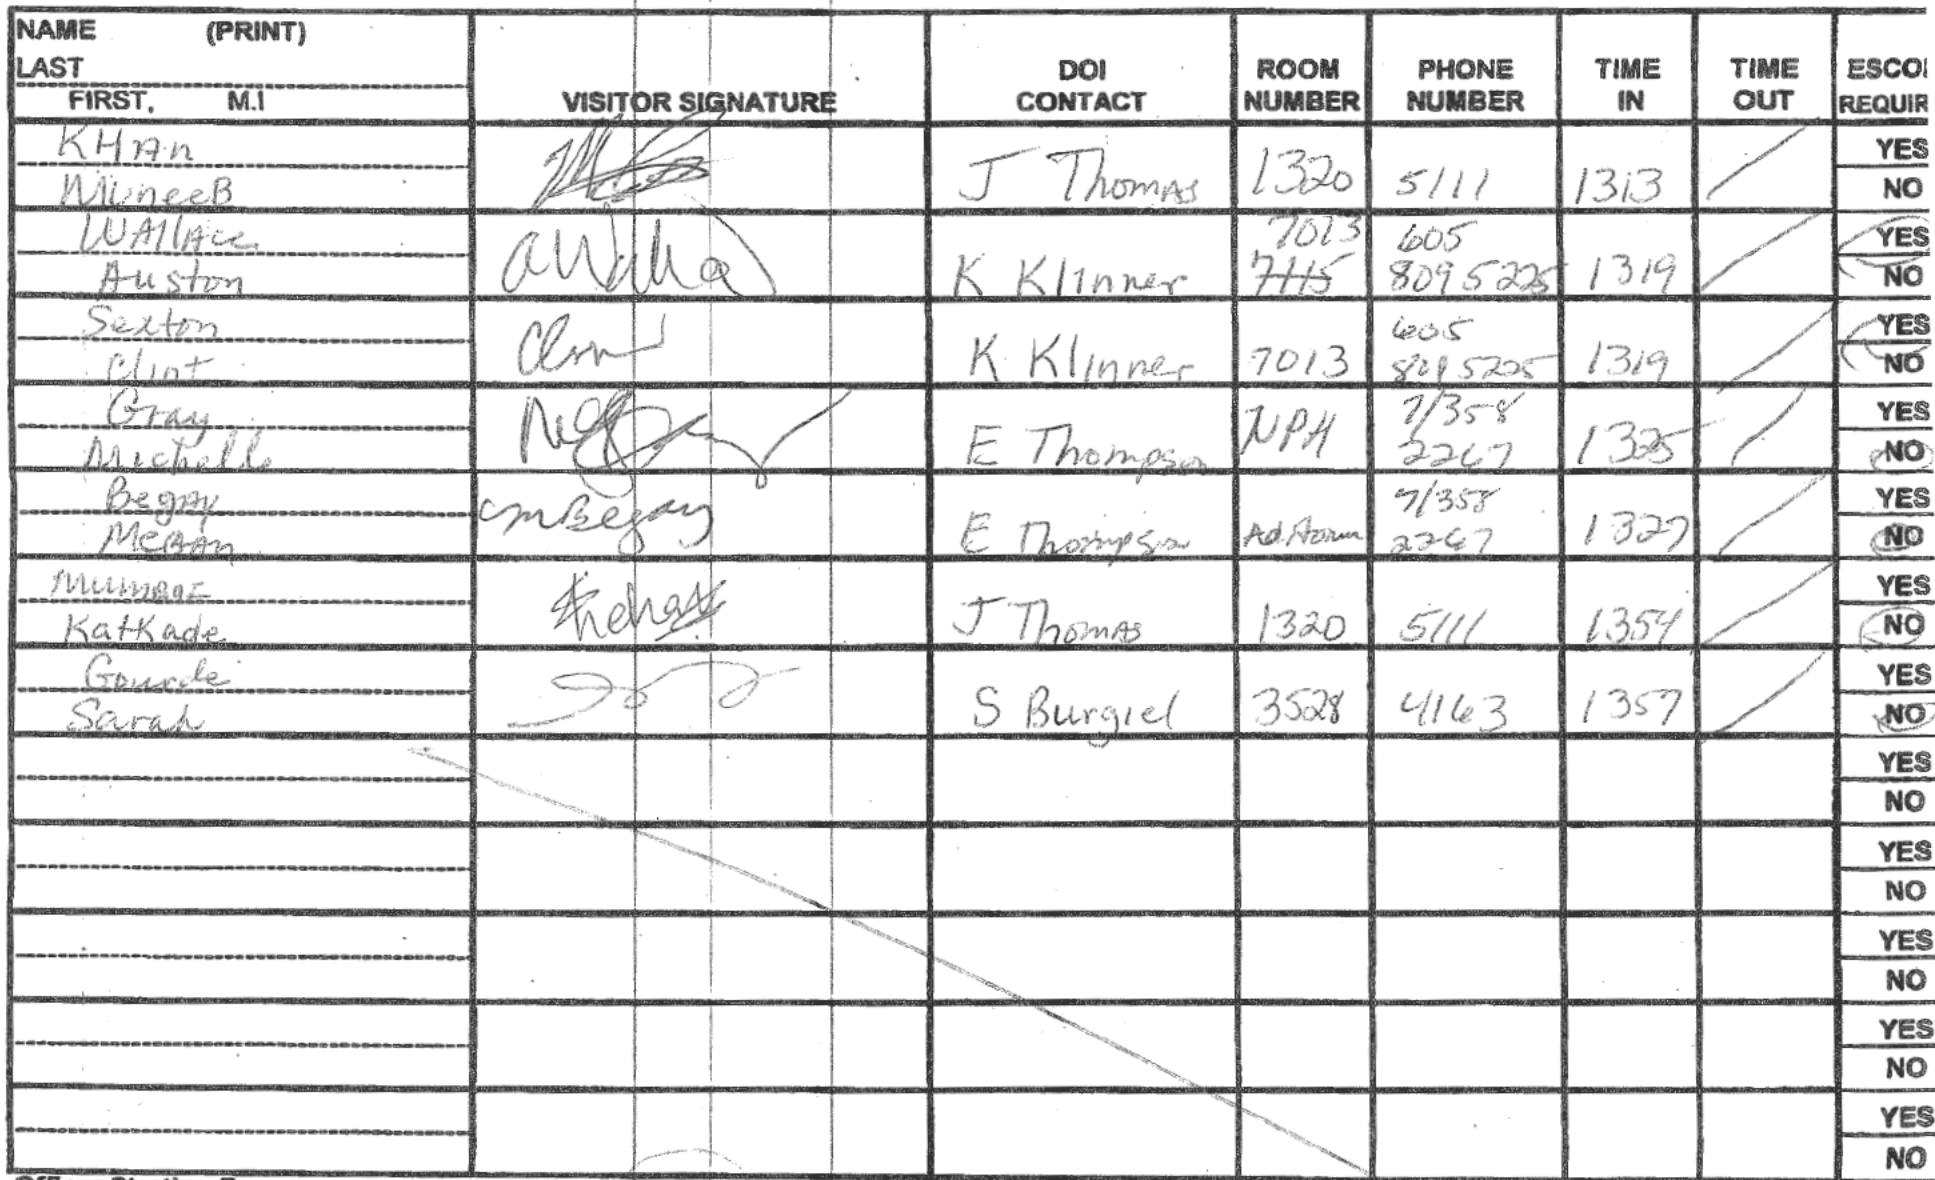 NAME (PRINT)
LAST
FIRST, M.I
VISITOR SIGNATURE
DOI CONTACT
ROOM NUMBER
PHONE NUMBER
TIME IN
TIME OUT
KHAn
MuneeB
J Thomas 1320 5111 1313
YES
NO
WAllAce
Auston
K Klinner 7013 7115 605 809 5225 1319
YES
NO
Sexton
Clint
K Klinner 7013 605 5225 1319
YES
NO
Gray
Michelle
E Thompson NPH 7/358 2267 1325
YES
NO
Begay
E Thompson 7/358 2267 1327
YES
NO
KatKade
J Thomas 1320 5111 1354
YES
NO
Gourde
Sarah
S Burgiel 3528 4163 1357
YES
NO
YES
NO
YES
NO
YES
NO
YES
NO
YES
NO